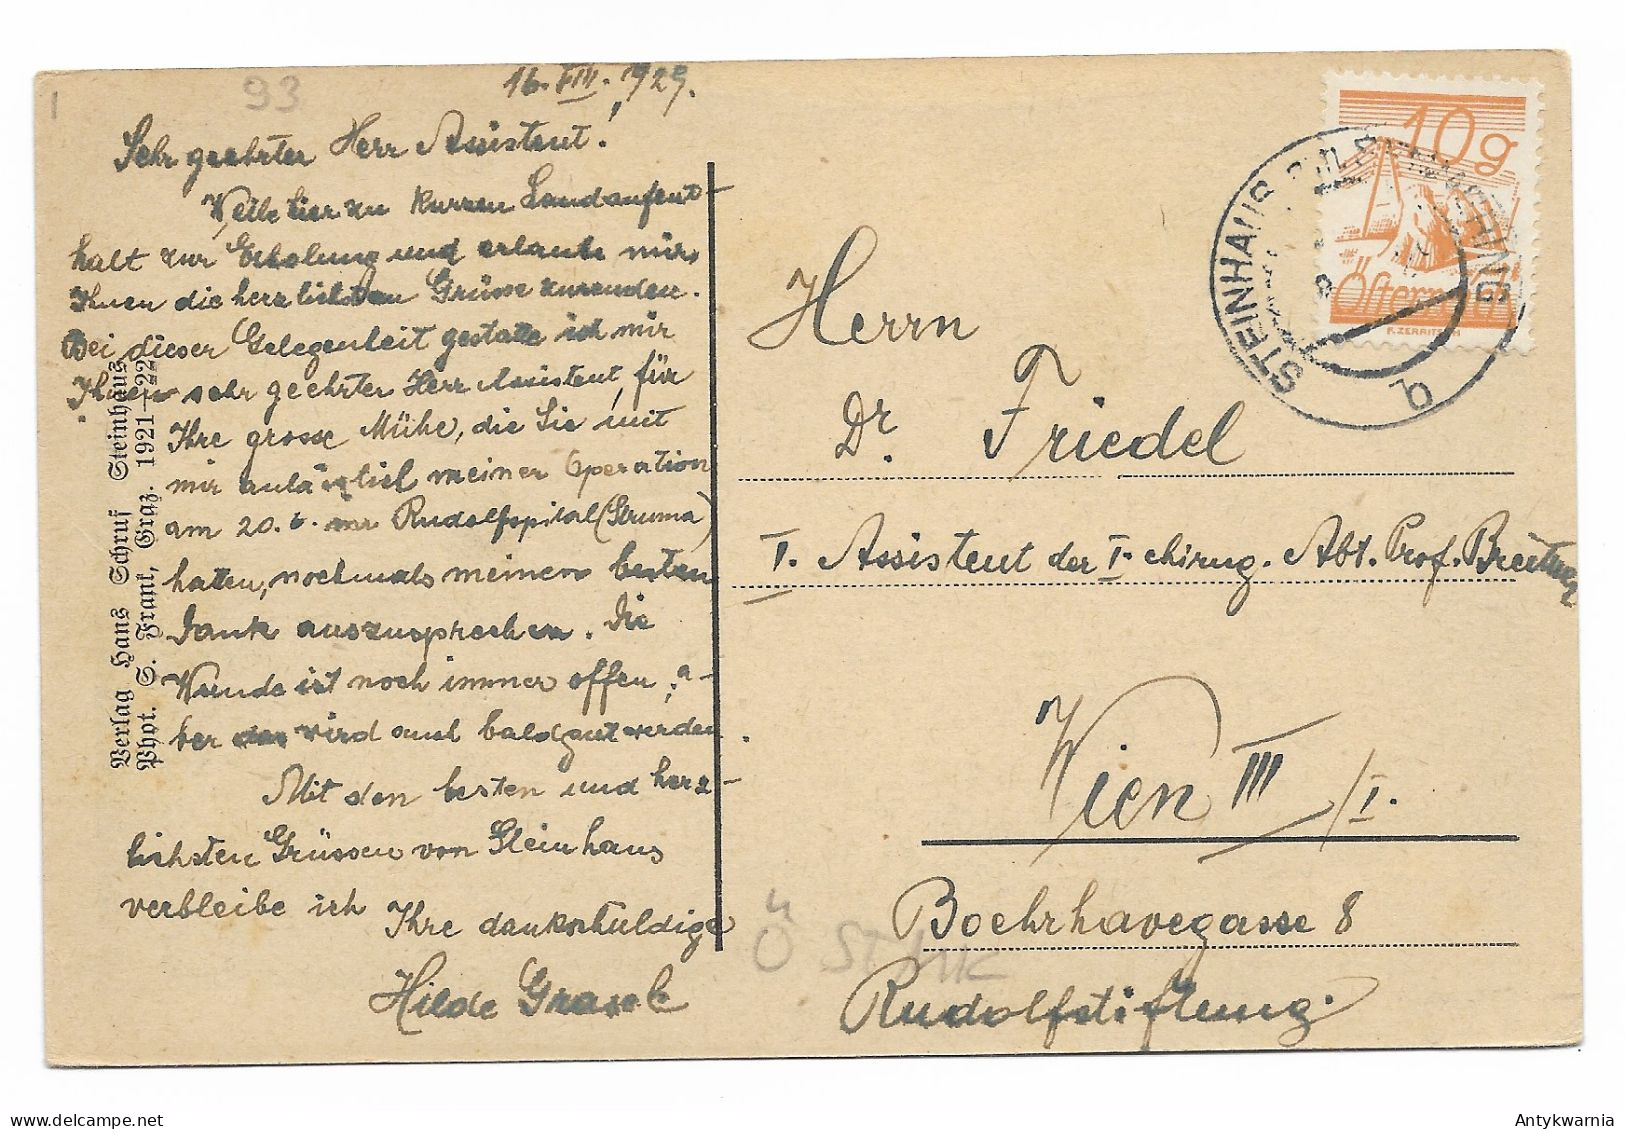 93
16. VIII. 1929.
Sehr geehrter Herr Assistent!
Weile hier zu kurzen Landaufent-
halt zur Erholung und erlaube mir,
Ihnen die herzlichsten Grüsse zuzusenden.
Bei dieser Gelegenheit gestatte ich mir
Ihnen sehr geehrter Herr Assistent, für
Ihre grosse Mühe, die Sie mit
mir anlässlich meiner Operation
am 20. 6. im Rudolfspital (Struma)
hatten, nochmals meinen besten
Dank auszusprechen. Die
Wunde ist noch immer offen, a-
ber das wird auch bald gut werden.
Mit den besten und herz-
lichsten Grüssen von Steinhaus
verbleibe ich
Ihre dankschuldige
Hilde
Verlag Hans Schruf Steinhaus
Phot. S. Frank, Graz. 1921—22
10g
Österreich
F. ZERRITSCH
STEINHAUS
b
Herrn
Dr. Friedel
I. Assistent der I. chirug. Abt. Prof.
Wien III/I.
Boehrhavegasse 8
Rudolfstiftung.
Ö STMK
delcampe.net
Antykwarnia